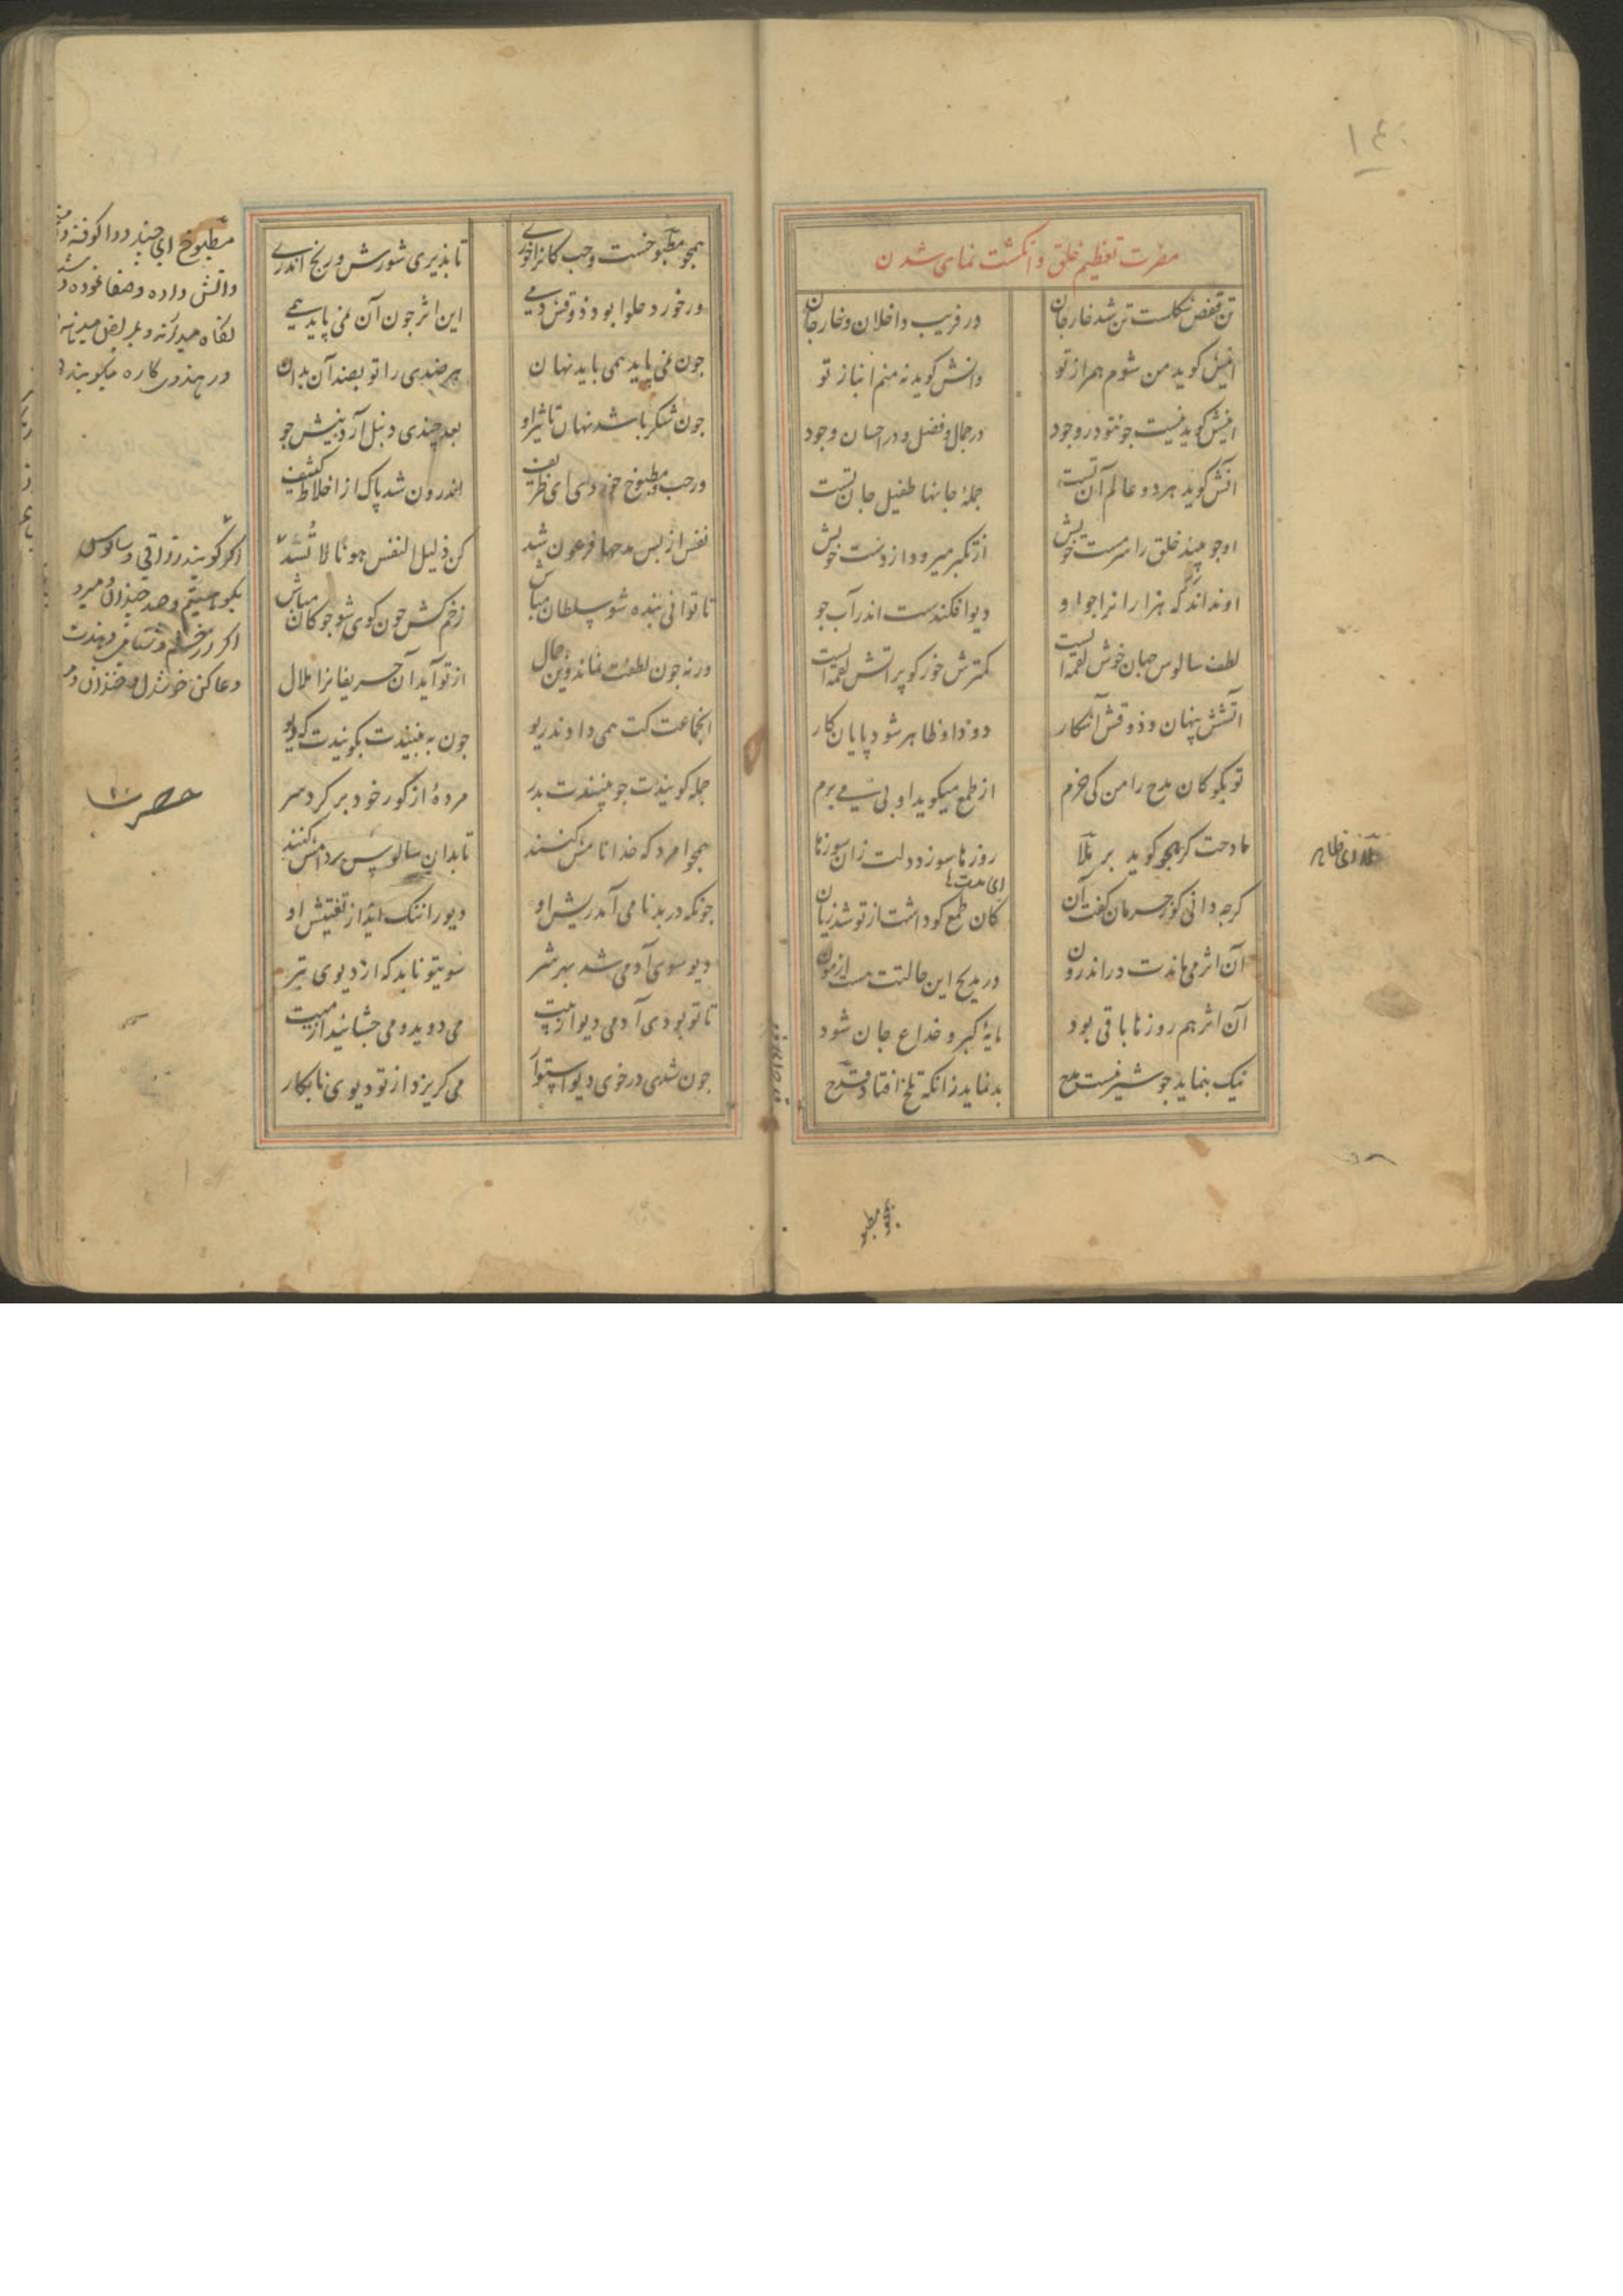 ۱۴۰
مضرت تعظیم خلق و انکشت نمای شدن
تن قفص شکلست تن شد خار جان در فریب داخلان و خارجان
اینش کوید من شوم همراز تو وانش کوید نه منم انباز تو
اینش کوید نیست جونتو در وجود در جمال و فضل و در احسان و جود
آنش کوید هر دو عالم آن تست جملهٔ جانها طفیل جان تست
او جو بیند خلق را سرمست خویش از تکبر میرود از دست خویش
او نداند که هزارا نرا جو او دیو افکندست اندر آب جو
لطف سالوس جهان خوش لقمه‌ایست کمترش خور کو پر آتش لقمه‌ایست
آتشش پنهان و ذوقش آشکار دود او ظاهر شود پایان کار
تو بکو کان مدح را من کی خرم از طمع میکوید او پی می برم
مادحت کر هجو کوید بر ملا روزها سوزد دلت زان سوزها
ای مدتها
کرجه دانی کو ز حرمان کفت آن کان طمع کو داشت از تو شد زیان
آن اثر می‌ماندت در اندرون در مدیح این حالتت هست ازمون
آن اثر هم روزها باقی بود مایهٔ کبر و خداع جان شود
نیک بنماید جو شیرینست مدح بد نماید زانکه تلخ افتاد قدح
همجو مطبو
همجو مطبوخست و حب کانرا خوری تا بذیری شورش و رنج اندری
ور خوری حلوا بود ذوقش دمی این اثر جون آن نمی پاید همی
جون نمی پاید همی پاید نهان هر ضدی را تو بضد آن بدان
جون شکر باشد نهان تاثیر او بعد جندی دنبل آرد نیش جو
ور حب و مطبوخ خوردی ای ظریف اندرون شد پاک از اخلاط کثیف
نفس از بس مدحها فرعون شد کن ذلیل النفس هونا لا تسد
تا توانی بنده شو سلطان مباش زخم کش جون کوی شو جوکان مباش
ورنه جون لطفت نماند وین جمال از تو آید آن حریفانرا ملال
آنجماعت کت همی دادند ریو جون به بینندت بکویندت که دیو
جمله کویندت جو بینندت بدر مردهٔ از کور خود بر کرد سر
همجو امرد که خدا نامش کنند تا بدان سالوس بر دامش کنند
جونکه در بدنامی آمد ریش او دیو را ننک اید از تفتیش او
دیو سوی آدمی شد بهر شر سوی تو ناید که از دیوی بتر
تا تو بودی آدمی دیو از پیت می دوید و می جشانید از میت
جون شدی در خوی دیو استوار می کریزد از تو دیوی نابکار
مطبوخ ای جند دوا کوفته
واتش داده وصفا نموده
اکر کویند زراقی و سالوس
بکو هستم دو صد جندان و میرو
اکر از خشم دشنامی دهندت
دعا کن خوشدل و خندان و میرو